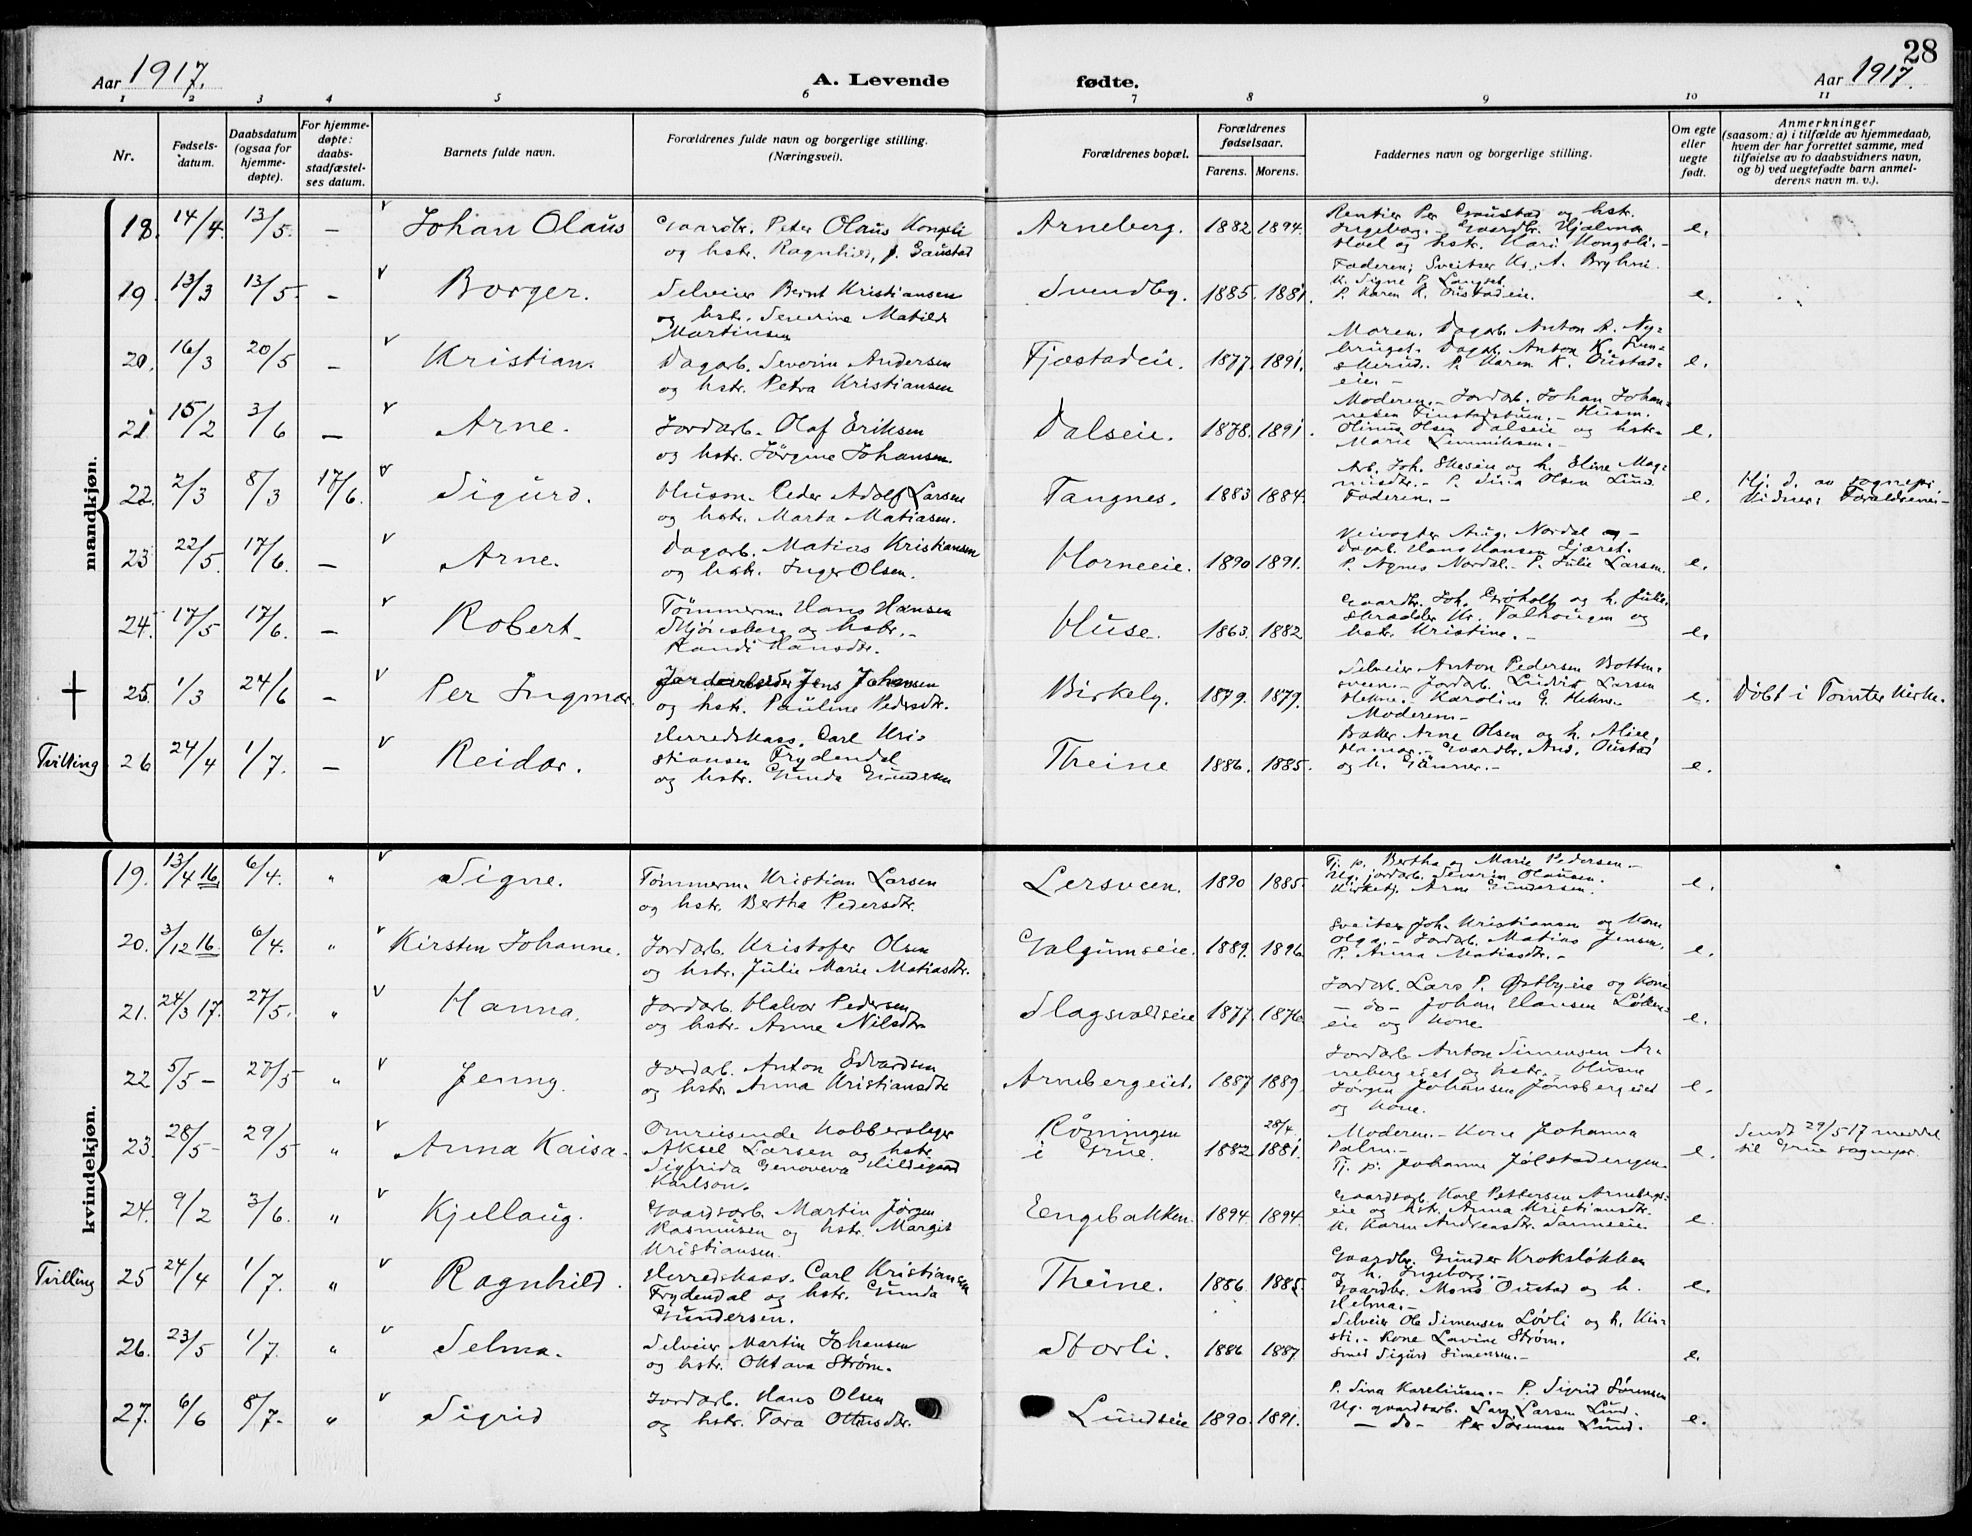 28
Aar 1917.
A. Levende
fødte.
Aar 1917.
1 2 3 4 5 6 7 8 9 10 11
Nr.
Fødsels-
datum.
Daabsdatum
(ogsaa for
hjemme-
døpte).
For hjemme-
døpte:
daabs-
stadfæstel-
ses datum.
Barnets fulde navn.
Forældrenes fulde navn og borgerlige stilling.
(Næringsvei).
Forældrenes bopæl.
Forældrenes
fødselsaar.
Farens. Morens.
Faddernes navn og borgerlige stilling.
Om egte
eller
uegte
født.
Anmerkninger
(saasom: a) i tilfælde av hjemmedaab,
hvem der har forrettet samme, med
tilføielse av to daabsvidners navn,
og b) ved uegtefødte barn anmel-
derens navn m. v.).
mandkjøn.
18. 14/4. 13/5. – Johan Olaus
Gaardbr. Peter Olaus Kongsli
og hstr. Ragnhild, f. Gaustad
Arneberg. 1882 1894.
Rentier Per Gaustad og hstr.
Ingeborg. - Gaardbr. Hjalmar
Hoel og hstr. Kari Kongsli. -
e.
19. 13/3 13/5. – Borger.
Selveier Bernt Kristiansen
og hstr. Severine Matilde
Martinsen
Svendby. 1885. 1881.
Faderen; Sveitser Kr. A. Bryhni.
K. Signe P. Langset.
P. Karen K. Oustadeie.
e.
20. 16/3 20/5 – Kristian.
Dagarb. Severin Andersen
og hstr. Petra Kristiansen
Fjæstadeie. 1877. 1891.
Moren. Dagarb. Anton A. Ny-
bruget. Dagarb. Anton K.
P. Karen K. Oustad-
eie. -
e.
21 15/2 3/6 – Arne.
Jordarb. Olaf Eriksen
og hstr. Jørgine Johansen.
Dalseie. 1878. 1891.
Moderen. - Jordarb. Johan Johan-
nesen Finstadstuen. - Husm.
Olinus Olsen Dalseie og hstr.
Marie
e.
22. 2/3 8/3 17/6. Sigurd.
Husm. Peder Adolf Larsen
og hstr. Marta Matiasen.
Tangnes. 1883 1884.
Arb. Joh. og h. Eline Mag-
P. Dina Olsen Lund.
Faderen. -
e.
Hj. d. av sognepr.
Vidner: Forældrene -
23 22/5. 17/6. – Arne.
Dagarb. Matias Kristiansen
og hstr. Inger Olsen.
Horneeie. 1890 1891.
Veivogter Aug. Nordal -
Dagarb. Hans Hansen
P. Agnes Nordal. - P. Julie Larsen.
e.
24. 17/5 17/6. – Robert
Tømmerm. Hans Hansen
Mjønesberg og hstr.
Randi Hansdtr.
Huse. 1863. 1882
Gaardbr. Joh. og h. Julie,
Skrædder Kr. og
hstr. Kristine. -
e.
25. 1/3 24/6 – Per Ingmar.
Jordarbeider Jens Johansen
og hstr. Pauline Pedersdtr.
Birkely. 1879. 1879.
Selveier Anton Pedersen Botten-
sveen. - Jordarb. Ludvik Larsen
Hekne. - Karoline G. Hekne.
Moderen. -
e.
Døbt i Tomter kirke.
Tvilling 26 24/4 1/7. – Reidar.
Herredskass. Carl Kri-
stiansen Frydendal
og hstr. Gunda Gundersen
Theine 1886. 1885.
Baker Arne Olsen og h. Alice,
Hamar. - Gaardbr. And. Oustad
og h. Gunner. -
e.
kvindekjøn.
19. 13/4 16 6/4. " Signe.
Tømmerm. Kristian Larsen
og hstr. Bertha Pedersdtr.
Lersveen. 1890 1885.
Tj. p. Bertha og Marie Pedersen. -
Ug. jordarb. Severin Olausen.
Kirketj. Arne Gundersen.
e.
20. 3/12 16. 6/4. " Kirsten Johanne.
Jordarb. Kristofer Olsen
og hstr. Julie Marie Matiasdtr.
Galgumseie. 1889. 1896
Sveitser Joh. Kristiansen og kone
Olga. - Jordarb. Matias Jensen.
P. Anna Matiasdtr. -
e.
21. 24/3 17. 27/5. " Hanna.
Jordarb. Halvor Pedersen
og hstr. Anne Nilsdtr.
Slagsvoldseie 1877. 1876
Jordarb. Lars P. Østbyeie og kone
– do – Johan Hansen Løken-
eie og kone.
e.
22 5/5 - 27/5 " Jenny.
Jordarb. Anton Edvardsen
og hstr. Anna Kristiansdtr.
Arnebergeiet. 1887 1889.
Jordarb. Anton Simensen Ar-
nebergeiet og hstr. - Husm.
Jørgen Johansen Jønsbergeiet
og kone.
e.
23. 28/5 - 29/5 " Anna Kaisa.
Omreisende kobberslager
Aksel Larsen og hstr.
Sigfrida Genoveva Hildegard
Karlson.
Røningen
i Grue. 1882 28/4 1881.
Moderen. - Kone Johanna
Palm. -
Tj. p. Johanne Jølstadengen.
e.
Sendt 29/5 17 meddel
til Grue sognepr.
24. 9/2 3/6. " Kjellaug.
Gaardsarb. Martin Jørgen
Rasmusen og hstr. Margit
Kristiansen.
Engebakken. 1894. 1894.
Gaardsarb. Karl Pettersen Arnebergs-
eie og hstr. Anna Kristiansdtr.
K. Karen Andreasdtr. Sanneeie.
e
Tvilling 25 24/4 1/7. " Ragnhild.
Herredskass. Carl Kristiansen
Frydendal og hstr. Gunda
Gundersen.
Theine. 1886. 1885.
Gaardbr. Gunder Krokslökken
og h. Ingeborg. -
Gaardbr. Mons Oustad og h.
Helma. -
e.
26. 23/5 1/7. " Selma.
Selveier Martin Johansen
og hstr. Oktava Strøm.
Storli. 1886 1887.
Selveier Ole Simensen Løvli og h. Kir-
sti. - Kone Lavine Strøm.
Smed Sigurd Simensen. -
e.
27. 6/6 8/7. " Sigrid
Jordarb. Hans Olsen
og hstr. Tora Ottersdtr.
Lundseie 1890. 1891.
P. Dina Kareliusen. - P. Sigrid Sørensen
Ug. gaardsarb. Lars Larsen Lund.
– do – Per Sørensen Lund.
e.